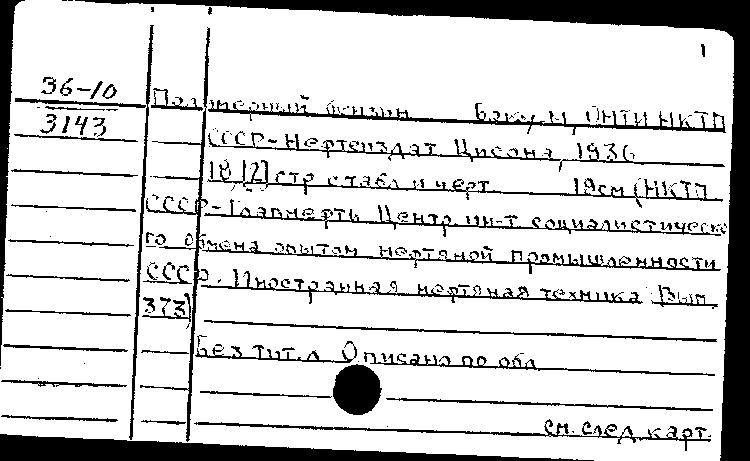 1
36-10
3143
Полимерный бензин Баку, М, ОНТИ НКТП
СССР-Нефтеиздат Цисона, 1936
18, [2] стр с табл и черт 19см (НКТП
СССР-Главнефть Центр. ин-т социалистическо
го обмена опытом нефтяной промышленности
СССР. Иностранная нефтяная техника Вып.
373)
Без тит. л Описано по обл
см. след. карт.